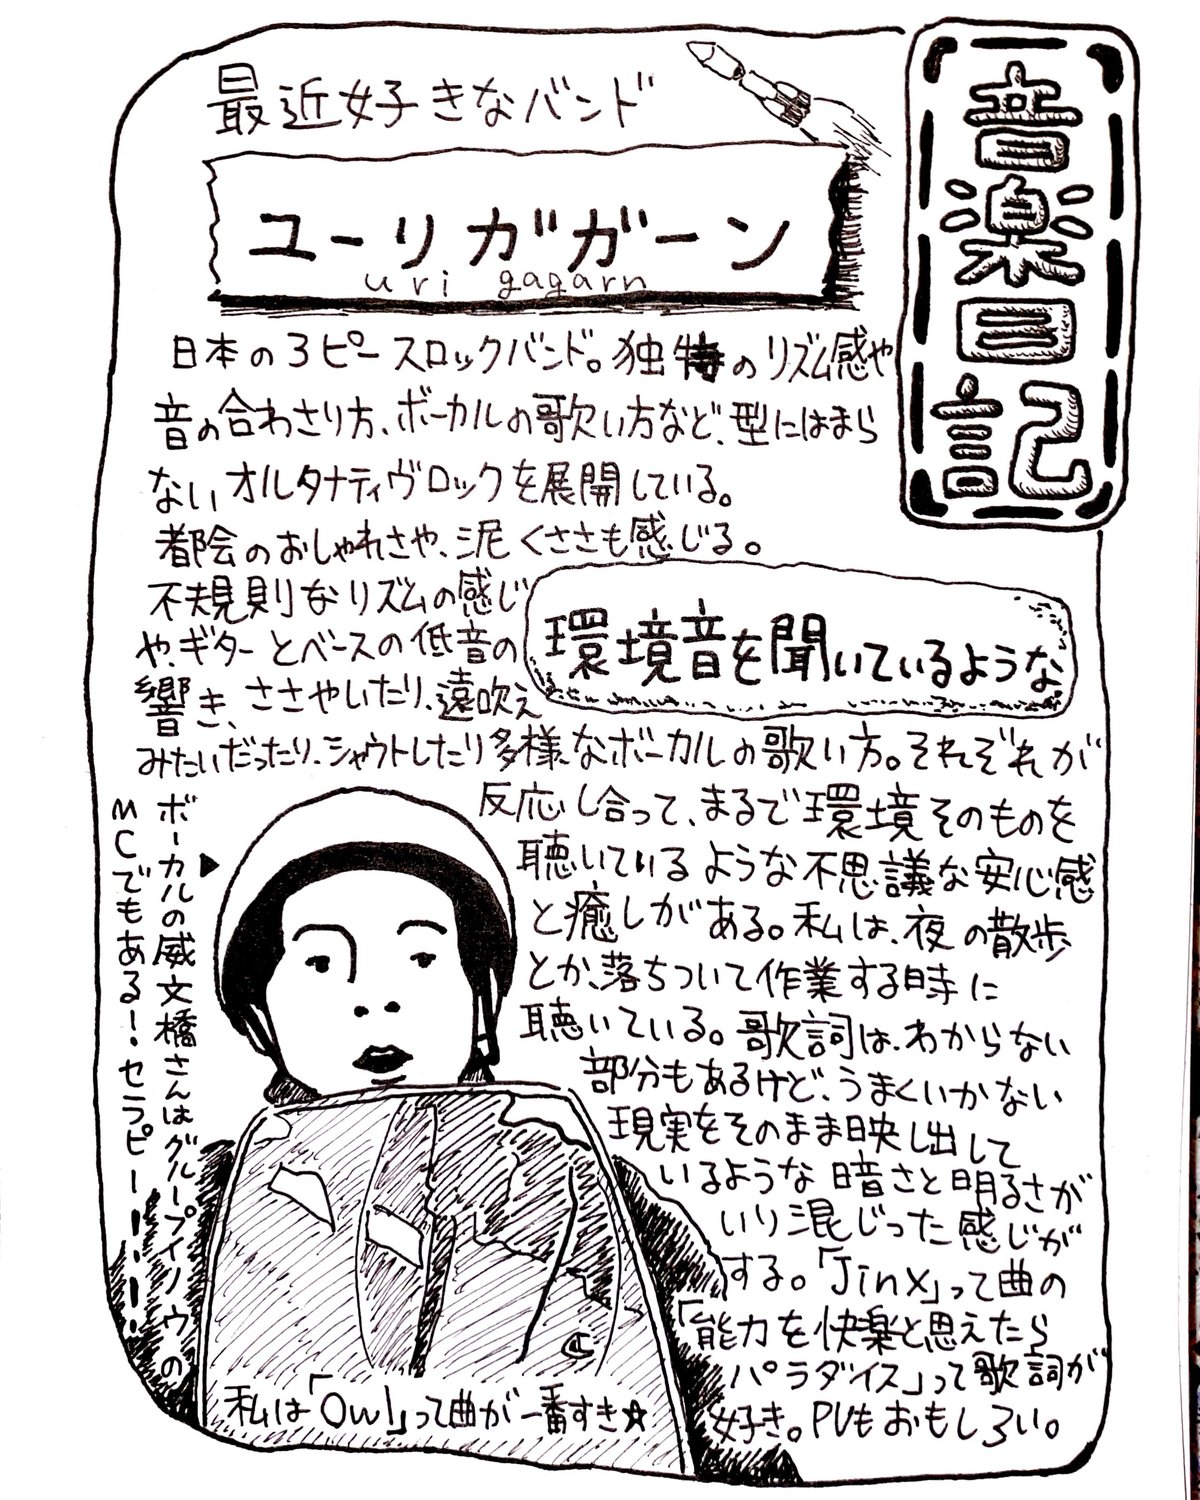 音楽日記
最近好きなバンド
ユーリガガーン
uri gagarn
日本の3ピースロックバンド。独特のリズム感や
音の合わさり方、ボーカルの歌い方など、型にはまら
ないオルタナティヴロックを展開している。
都会のおしゃれさや、泥くささも感じる。
不規則なリズムの感じ
や、ギターとベースの低音の
響き、ささやいたり、遠吹え
みたいだったり、シャウトしたり多様なボーカルの歌い方。それぞれが
環境音を聞いているような
反応し合って、まるで環境そのものを
聴いているような不思議な安心感
と癒しがある。私は、夜の散歩
とか、落ちついて作業する時に
聴いている。歌詞は、わからない
部分もあるけど、うまくいかない
現実をそのまま映し出して
いるような暗さと明るさが
いり混じった感じが
する。「Jinx」って曲の
「能力を快楽と思えたら
パラダイス」って歌詞が
好き。PVもおもしろい。
ボーカルの威文橋さんはグループイノウの
MCでもある!セラピーーーーー
私は「Owl」って曲が一番すき☆